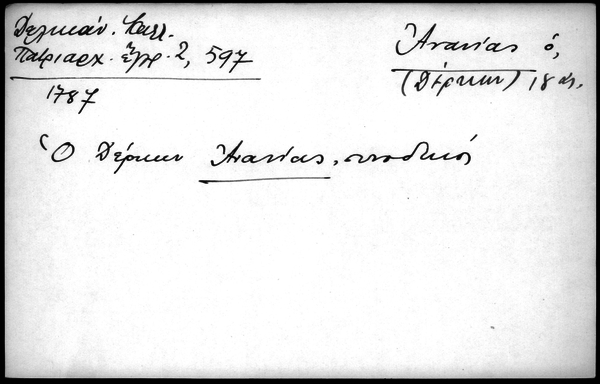 Δελικάν. Καλλ.
Πατριαρχ. ἔγγρ. 2, 597
1787
Ἀνανίας ὁ,
(Δέρκων) 18 αἰ.
Ὁ Δέρκων Ἀνανίας, συνοδικός